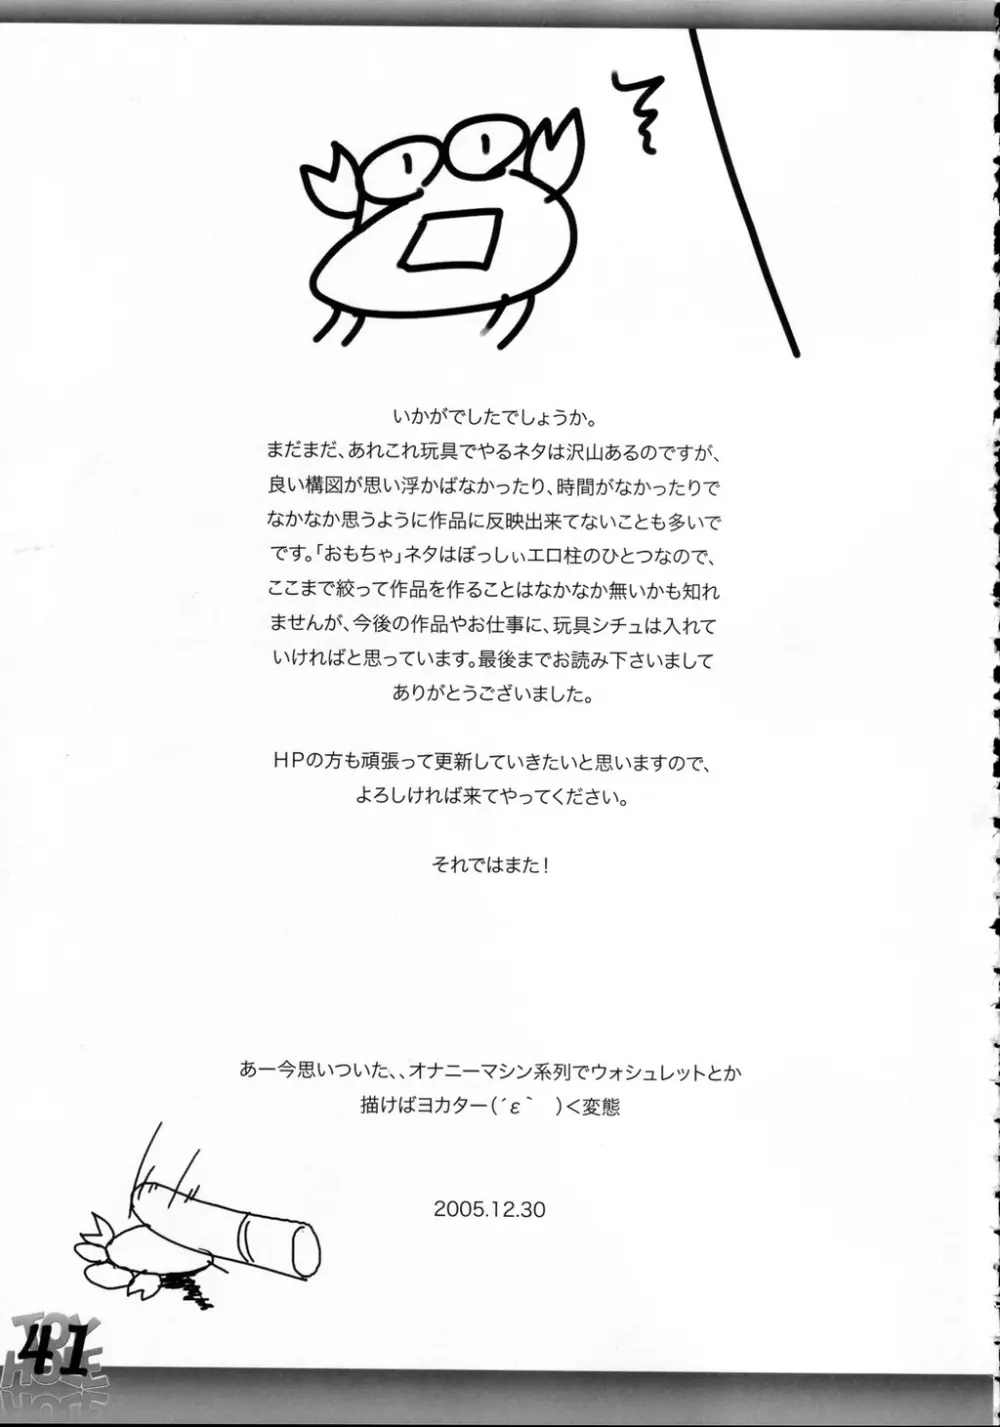 いかがでしたでしょうか。
まだまだ、あれこれ玩具でやるネタは沢山あるのですが、
良い構図が思い浮かばなかったり、時間がなかったりで
なかなか思うように作品に反映出来てないことも多いで
です。「おもちゃ」ネタはぼっしぃエロ柱のひとつなので、
ここまで絞って作品を作ることはなかなか無いかも知れ
ませんが、今後の作品やお仕事に、玩具シチュは入れて
いければと思っています。最後までお読み下さいまして
ありがとうございました。
HPの方も頑張って更新していきたいと思いますので、
よろしければ来てやってください。
それではまた！
あー今思いついた、、オナニーマシン系列でウォシュレットとか
描けばヨカター(´ε｀　)＜変態
2005.12.30
TOY
HOLE
41